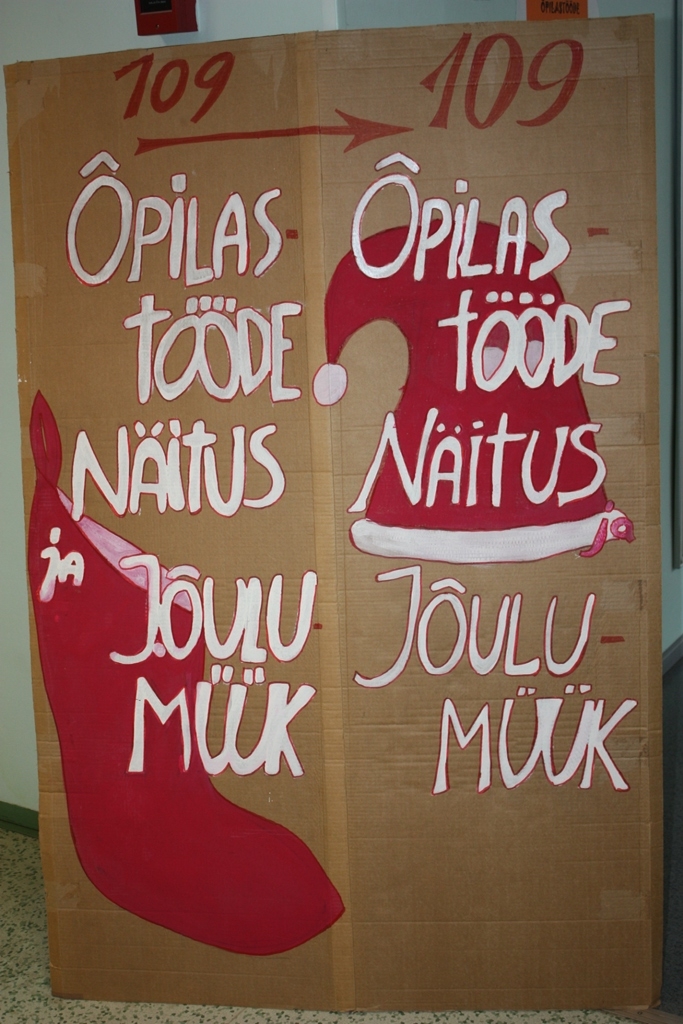 ÕPILASTÖÖDE
109
ÔPILAS-
TÖÖDE
NÄITUS
ja
JÔULU-
MÜÜK
109
ÔPILAS-
TÖÖDE
NÄITUS
JÔULU-
MÜÜK